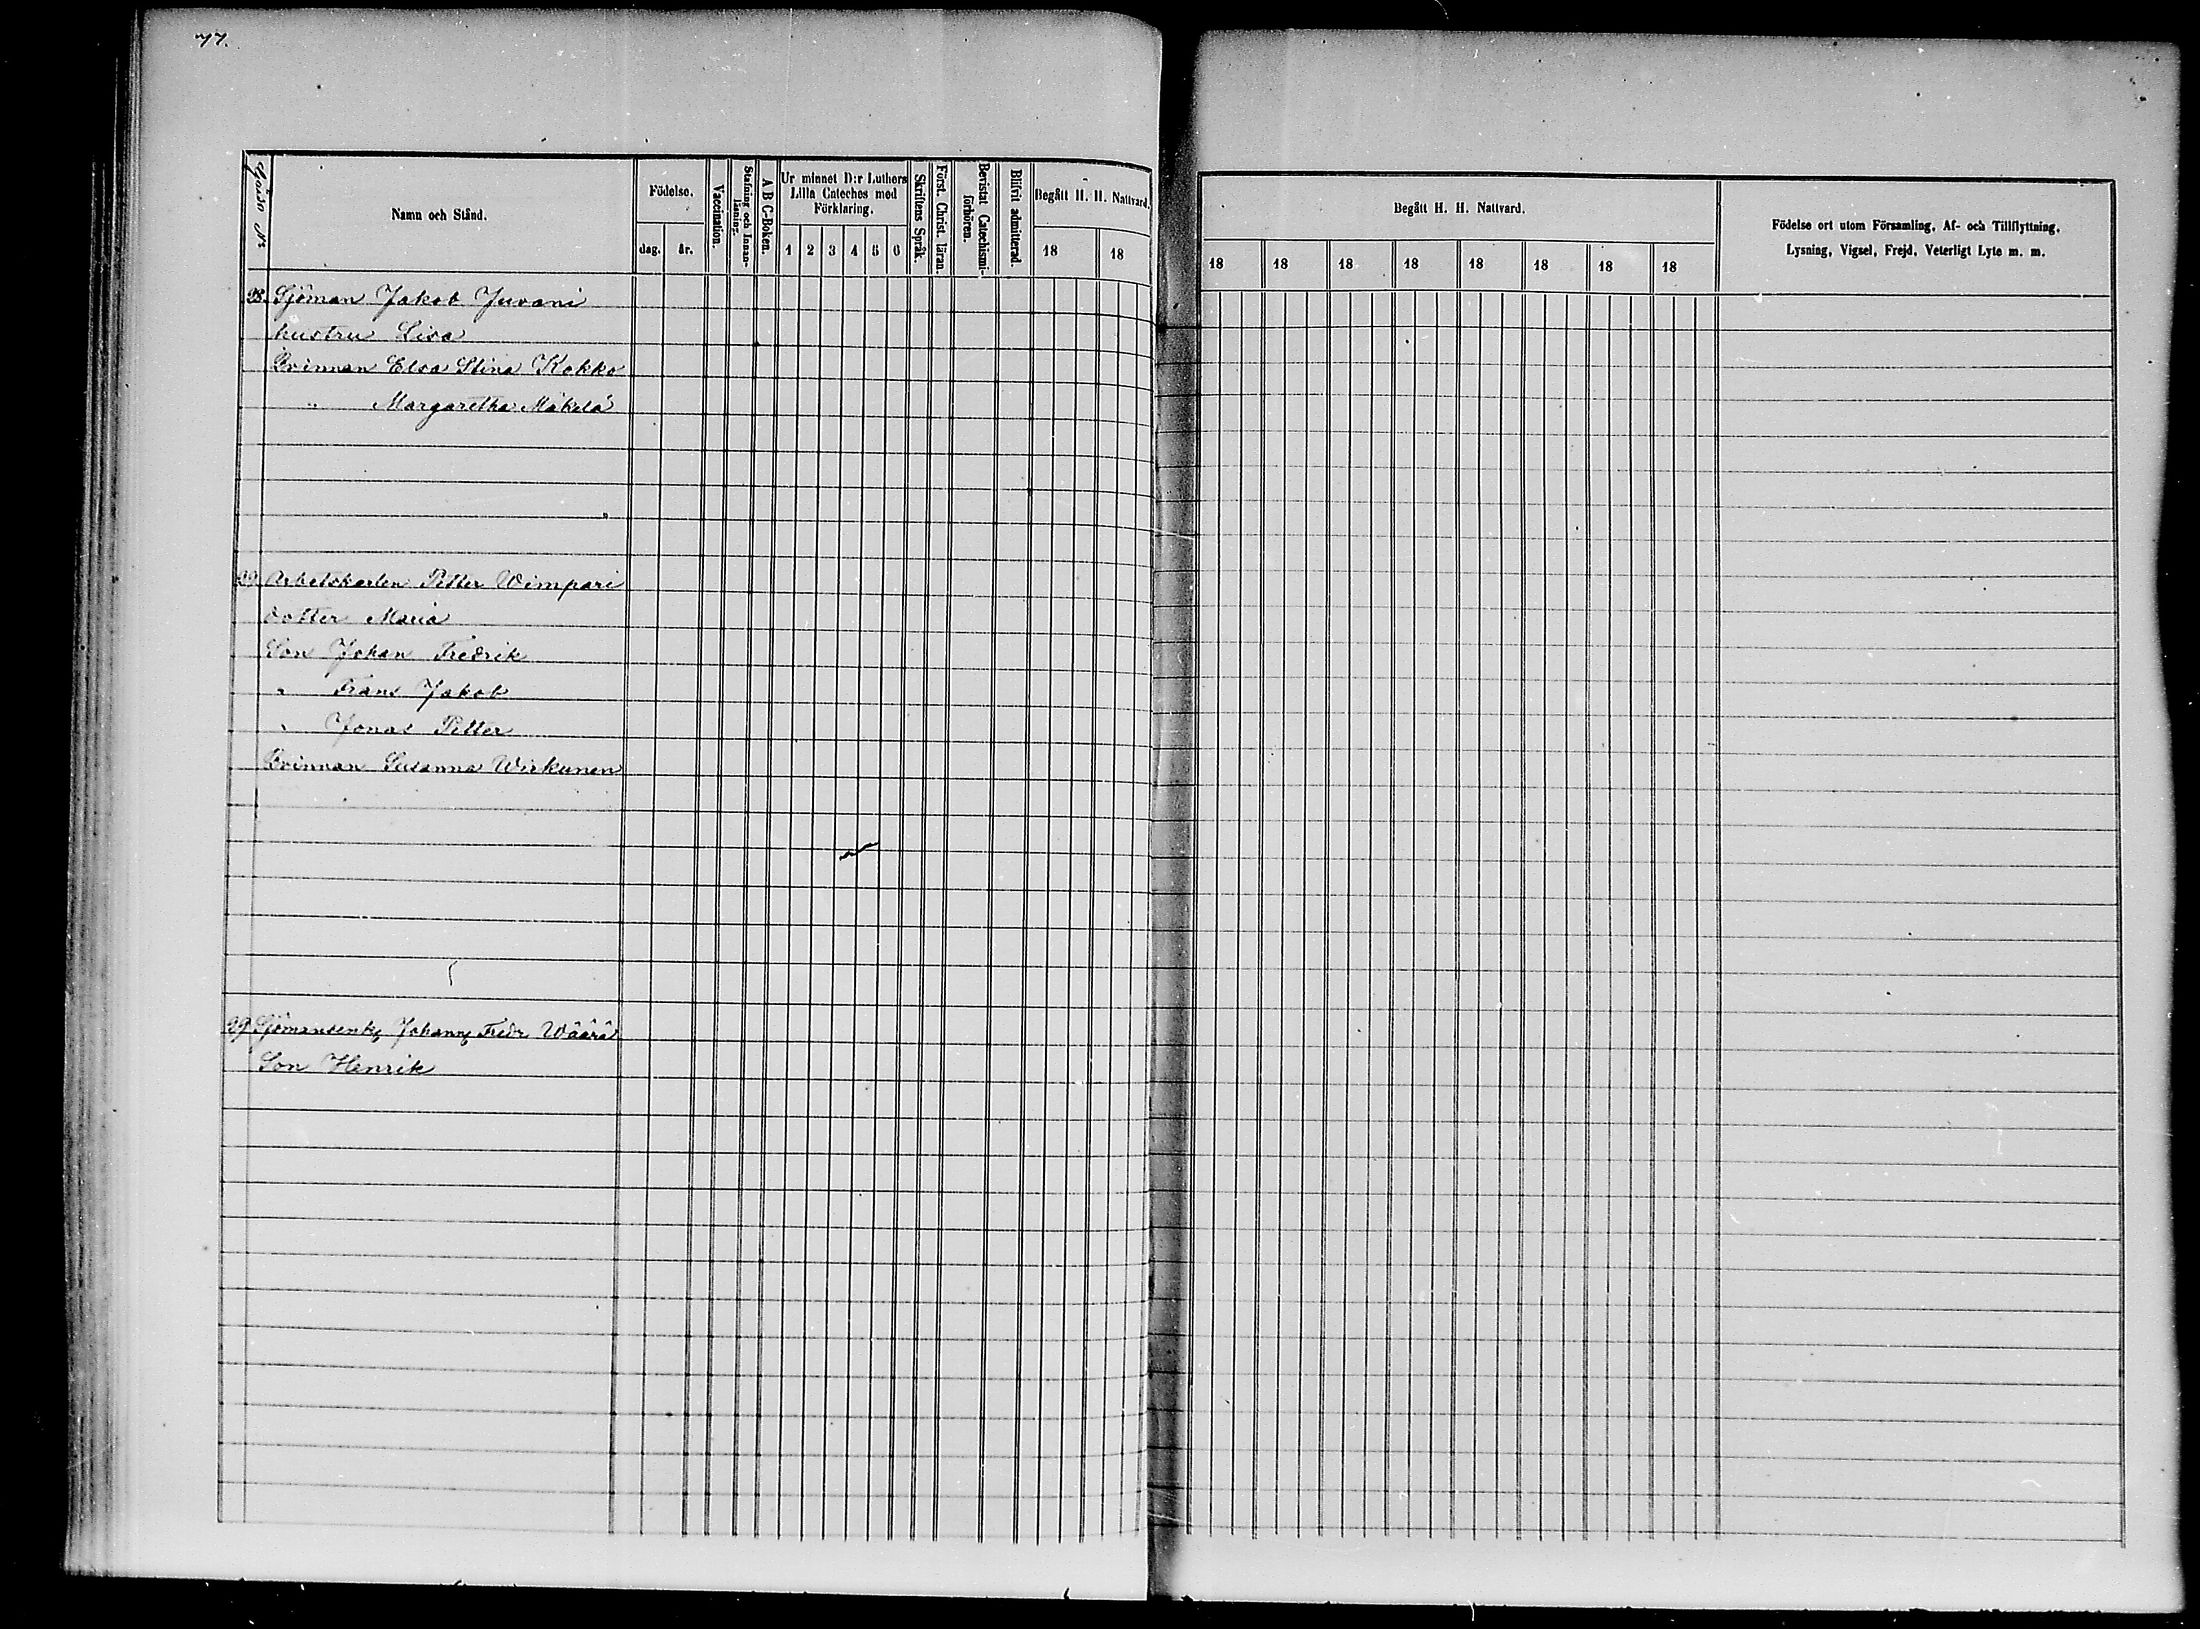 77.
Gårds Nr
Namn och Stånd.
Födelse.
dag.
år.
Vaccination.
Stafning och Innan-
läsning.
A B C-Boken.
Ur minnet D:r Luthers
Lilla Cateches med
Förklaring.
1 2 3 4 5 6
Skriftens Språk.
Först. Christ. läran.
Bevistat Catechismi-
förhören.
Blifvit admitterad.
Begått H. H. Nattvard.
18 18
Begått H. H. Nattvard.
18 18 18 18 18 18 18 18
Födelse ort utom Församling, Af- och Tillflyttning,
Lysning, Vigsel, Frejd, Veterligt Lyte m. m.
Sjöman Jakob Juvani
hustru Lisa
Qvinnan Elsa Stina Kokko
" Margaretha Mäkelä
Arbetskarlen Petter Wimpari
dotter Maria
Son Johan Fredrik
" Frans Jakob
" Jonas Petter
Qvinnan Susanna Wirkunen
29 Sjömansenk Johan Fredr Wäärä
Son Henrik